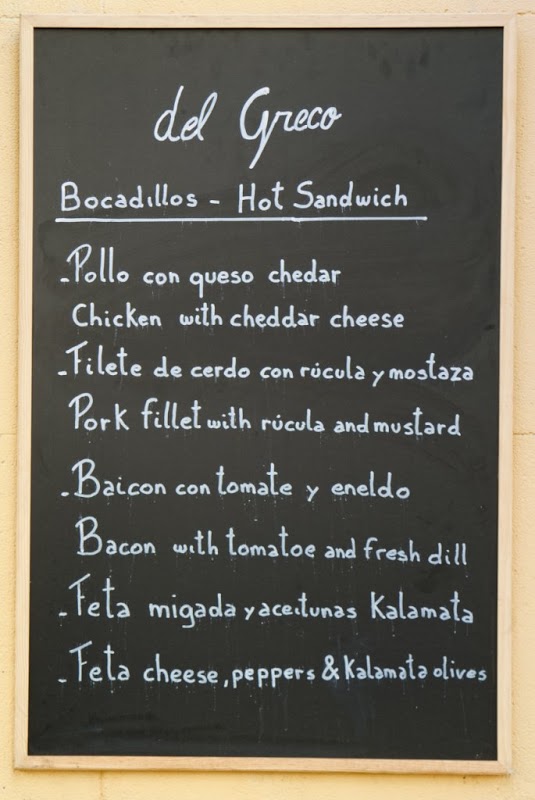 del Greco
Bocadillos - Hot Sandwich
-Pollo con queso chedar
Chicken with cheddar cheese
-Filete de cerdo con rúcula y mostaza
Pork fillet with rúcula and mustard
-Baicon con tomate y eneldo
Bacon with tomatoe and fresh dill
-Feta migada y aceitunas Kalamata
-Feta cheese, peppers & Kalamata olives